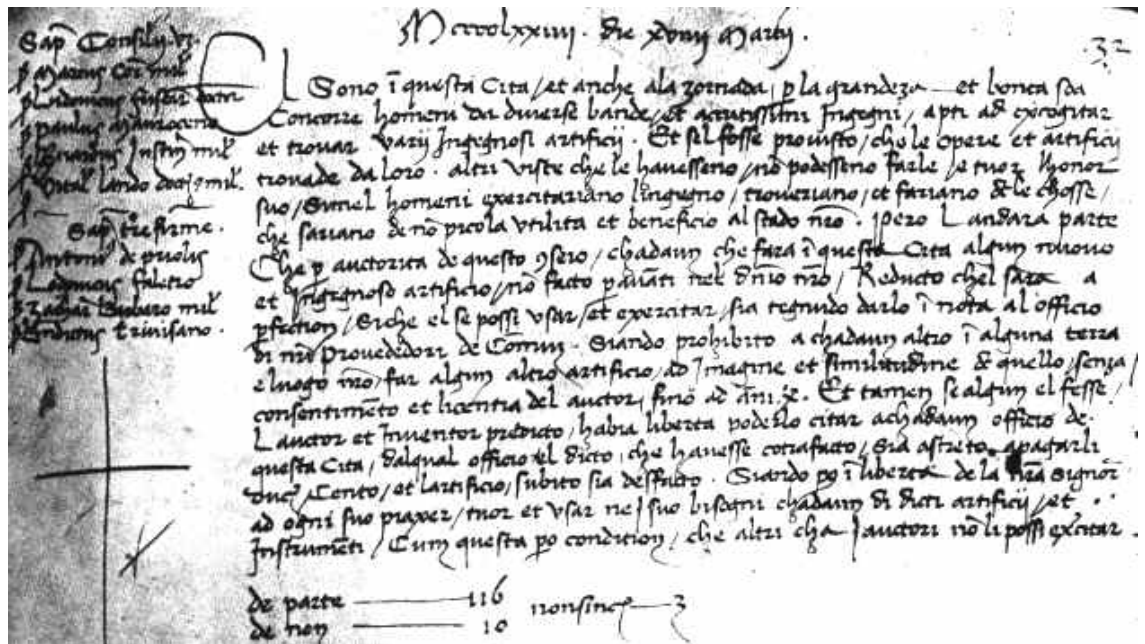 Mcccclxxiiii . die xviiij Martij .
32
Sap Consilij
Marcus Cor mil
Paulus Mauroceno
Vital lando doc mil
Sap t're firme .
Antonio de priolis
Ludovicus faletro
Zachar Barbaro mil
trivisano .
El Sono ī questa Cita / et anche ala zornada, p la grandeza et bonta soa
Concorre homeni da diverse bande / et acutissimi Ingegni, apti ad excogitar
et trovar varij Ingegnosi artificij . Et sel fosse provisto, che le opere et artificij
trovade da loro . altri viste che le havesseno / nō podesseno farle / e tuor lhonor
suo / Simel homeni exercitariano lingegno, troveriano, et fariano de le chosse /
che sariano de nō picola utilita et beneficio al stado nrō . Pero Landara parte
Che p auctorita de questo / chadaun che fara ī questa Cita algun nuovo
et Ingegnoso artificio / nō facto p avāti nel dnīo nrō / Reducto chel sara a
pfection / Siche el se possi usar / et exercitar / sia tegnudo darlo ī nota al officio
di nrī provededori de Comun . Siando prohibito a chadaun altro ī alguna terra
e luogo nrō / far algun altro artificio, ad Imagine et similitudine de quello / senza /
consentimēto et licentia del auctor, fino ad anni x . Et tamen se algun el fesse /
Lauctor et Inventor predicto / habia liberta poderlo citar achadaun officio de
questa Cita / dalqual officio el dicto, che havesse cōtrafacto / Sia astreto apagarli
duc Cento / et lartificio / subito sia desfacto . Siando po ī liberta de la nrā Signor
ad ogni suo piaxer / tuor et usar nei suo bisogni chadaun di dicti artificij / et
Instrumenti / Cum questa po condition / che altri cha i auctori nō li possi exercitar .
de parte 116 nonsinc 3
de non 10